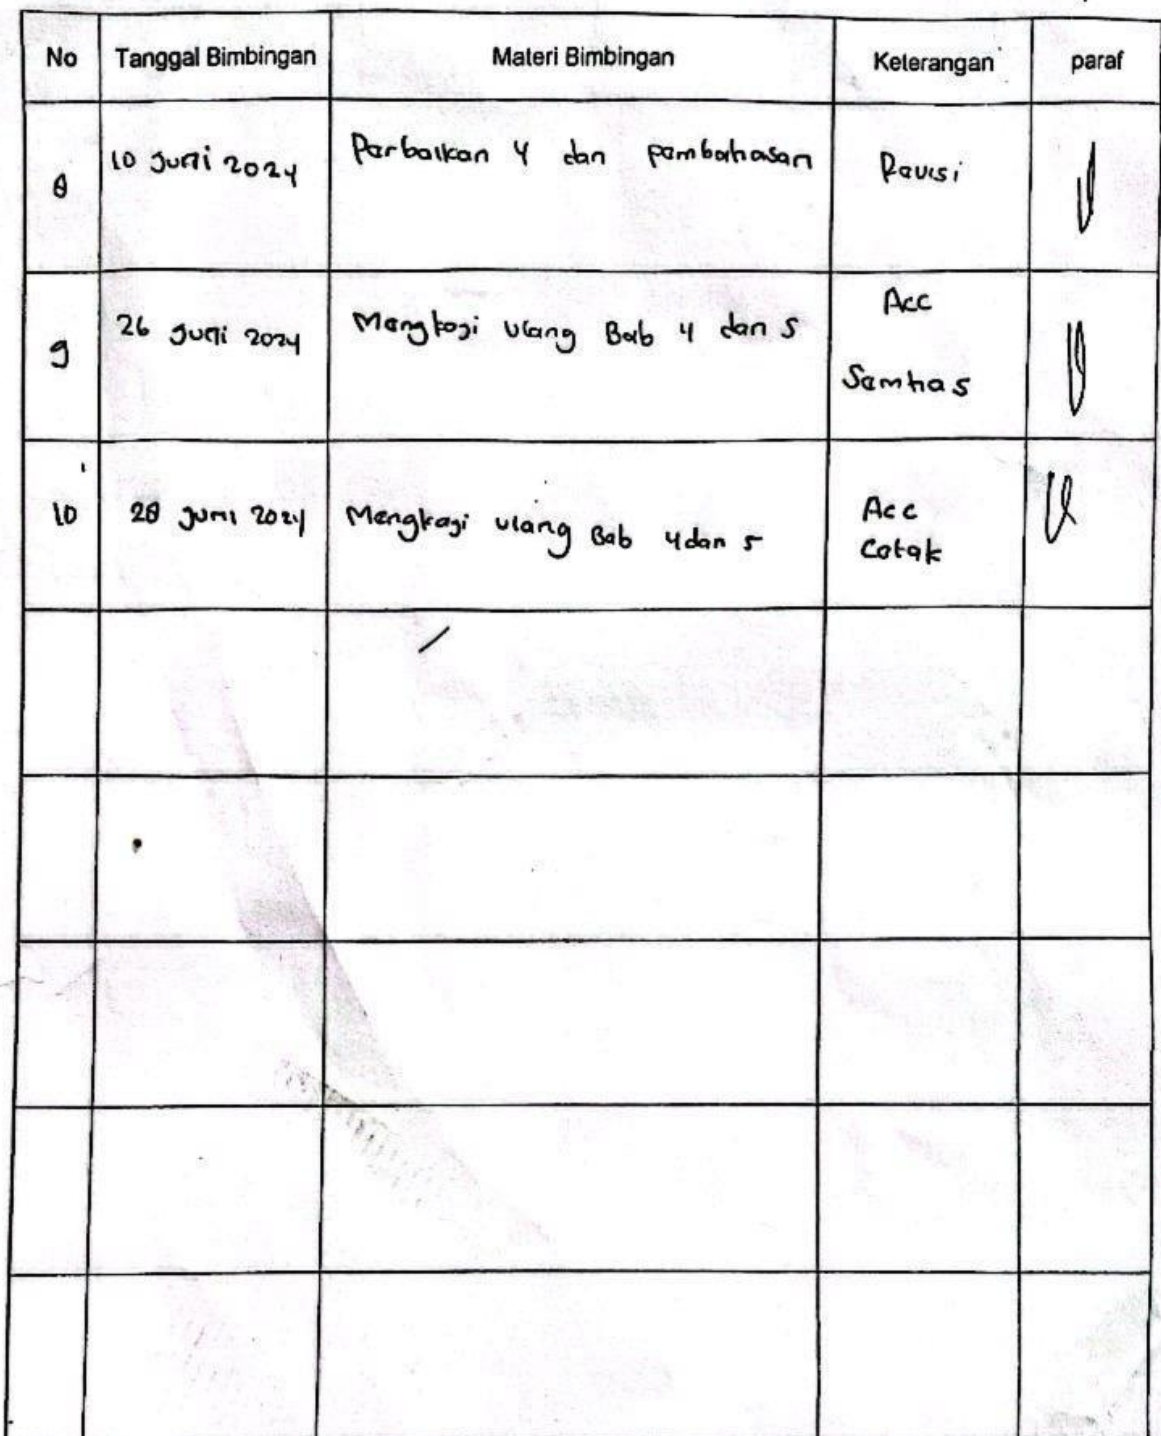 No Tanggal Bimbingan Materi Bimbingan Keterangan paraf
8 10 Juni 2024 Perbaikan 4 dan pembahasan Revisi
9 26 Juni 2024 Mengkaji ulang Bab 4 dan 5 Acc
Semhas
10 28 Juni 2024 Mengkaji ulang Bab 4 dan 5 Acc
Cetak